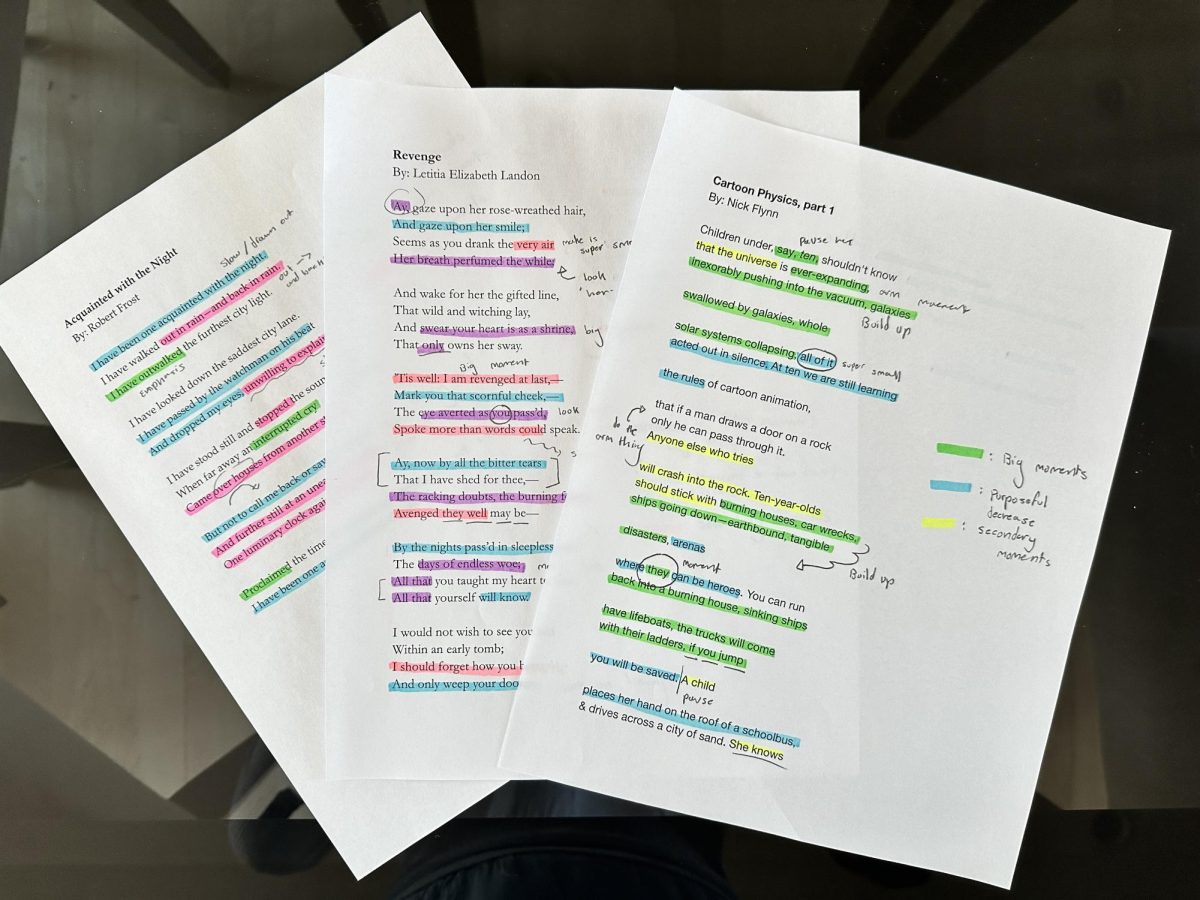 Acquainted with the Night
By: Robert Frost
slow / drawn out
I have been one acquainted with the night.
I have walked out in rain—and back in rain.
out →
and back
I have outwalked the furthest city light.
emphasis
I have looked down the saddest city lane.
I have passed by the watchman on his beat
And dropped my eyes, unwilling to explain
I have stood still and stopped the soun
When far away an interrupted cry
Came over houses from another s
But not to call me back or say
And further still at an une
One luminary clock again
Proclaimed the time
I have been one a
Revenge
By: Letitia Elizabeth Landon
Ay, gaze upon her rose-wreathed hair,
And gaze upon her smile;
Seems as you drank the very air
super
Her breath perfumed the while;
look
"her-
And wake for her the gifted line,
That wild and witching lay,
And swear your heart is as a shrine,
big
That only owns her sway.
Big moment
'Tis well: I am revenged at last,—
Mark you that scornful cheek,—
The eye averted as you pass'd,
look
Spoke more than words could speak.
s
Ay, now by all the bitter tears
That I have shed for thee,—
The racking doubts, the burning f
Avenged they well may be—
By the nights pass'd in sleepless
The days of endless woe;
All that you taught my heart t
All that yourself will know.
I would not wish to see you
Within an early tomb;
I should forget how you
And only weep your doo
Cartoon Physics, part 1
By: Nick Flynn
pause her
Children under, say, ten, shouldn't know
that the universe is ever-expanding,
arm movement
inexorably pushing into the vacuum, galaxies
Build up
swallowed by galaxies, whole
solar systems collapsing, all of it
super small
acted out in silence. At ten we are still learning
the rules of cartoon animation,
that if a man draws a door on a rock
only he can pass through it.
do the
arm thing
Anyone else who tries
will crash into the rock. Ten-year-olds
should stick with burning houses, car wrecks,
ships going down—earthbound, tangible
Build up
disasters, arenas
moment
where they can be heroes. You can run
back into a burning house, sinking ships
have lifeboats, the trucks will come
with their ladders, if you jump
you will be saved. A child
pause
places her hand on the roof of a schoolbus,
& drives across a city of sand. She knows
: Big moments
: Purposeful
decrease
: secondary
moments